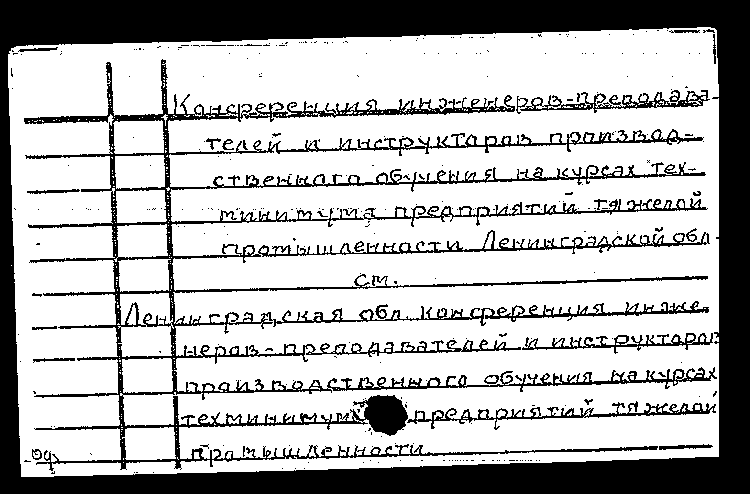 Конференция инженеров-преподава-
телей и инструкторов производ-
ственного обучения на курсах тех-
минимума предприятий тяжелой
промышленности Ленинградской обл.
см.
Ленинградская обл. конференция инже-
неров-преподавателей и инструкторов
производственного обучения на курсах
техминимума предприятий тяжелой
промышленности.